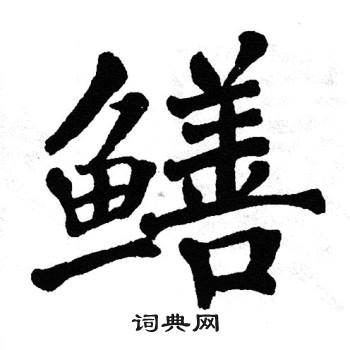 鳝
词典网